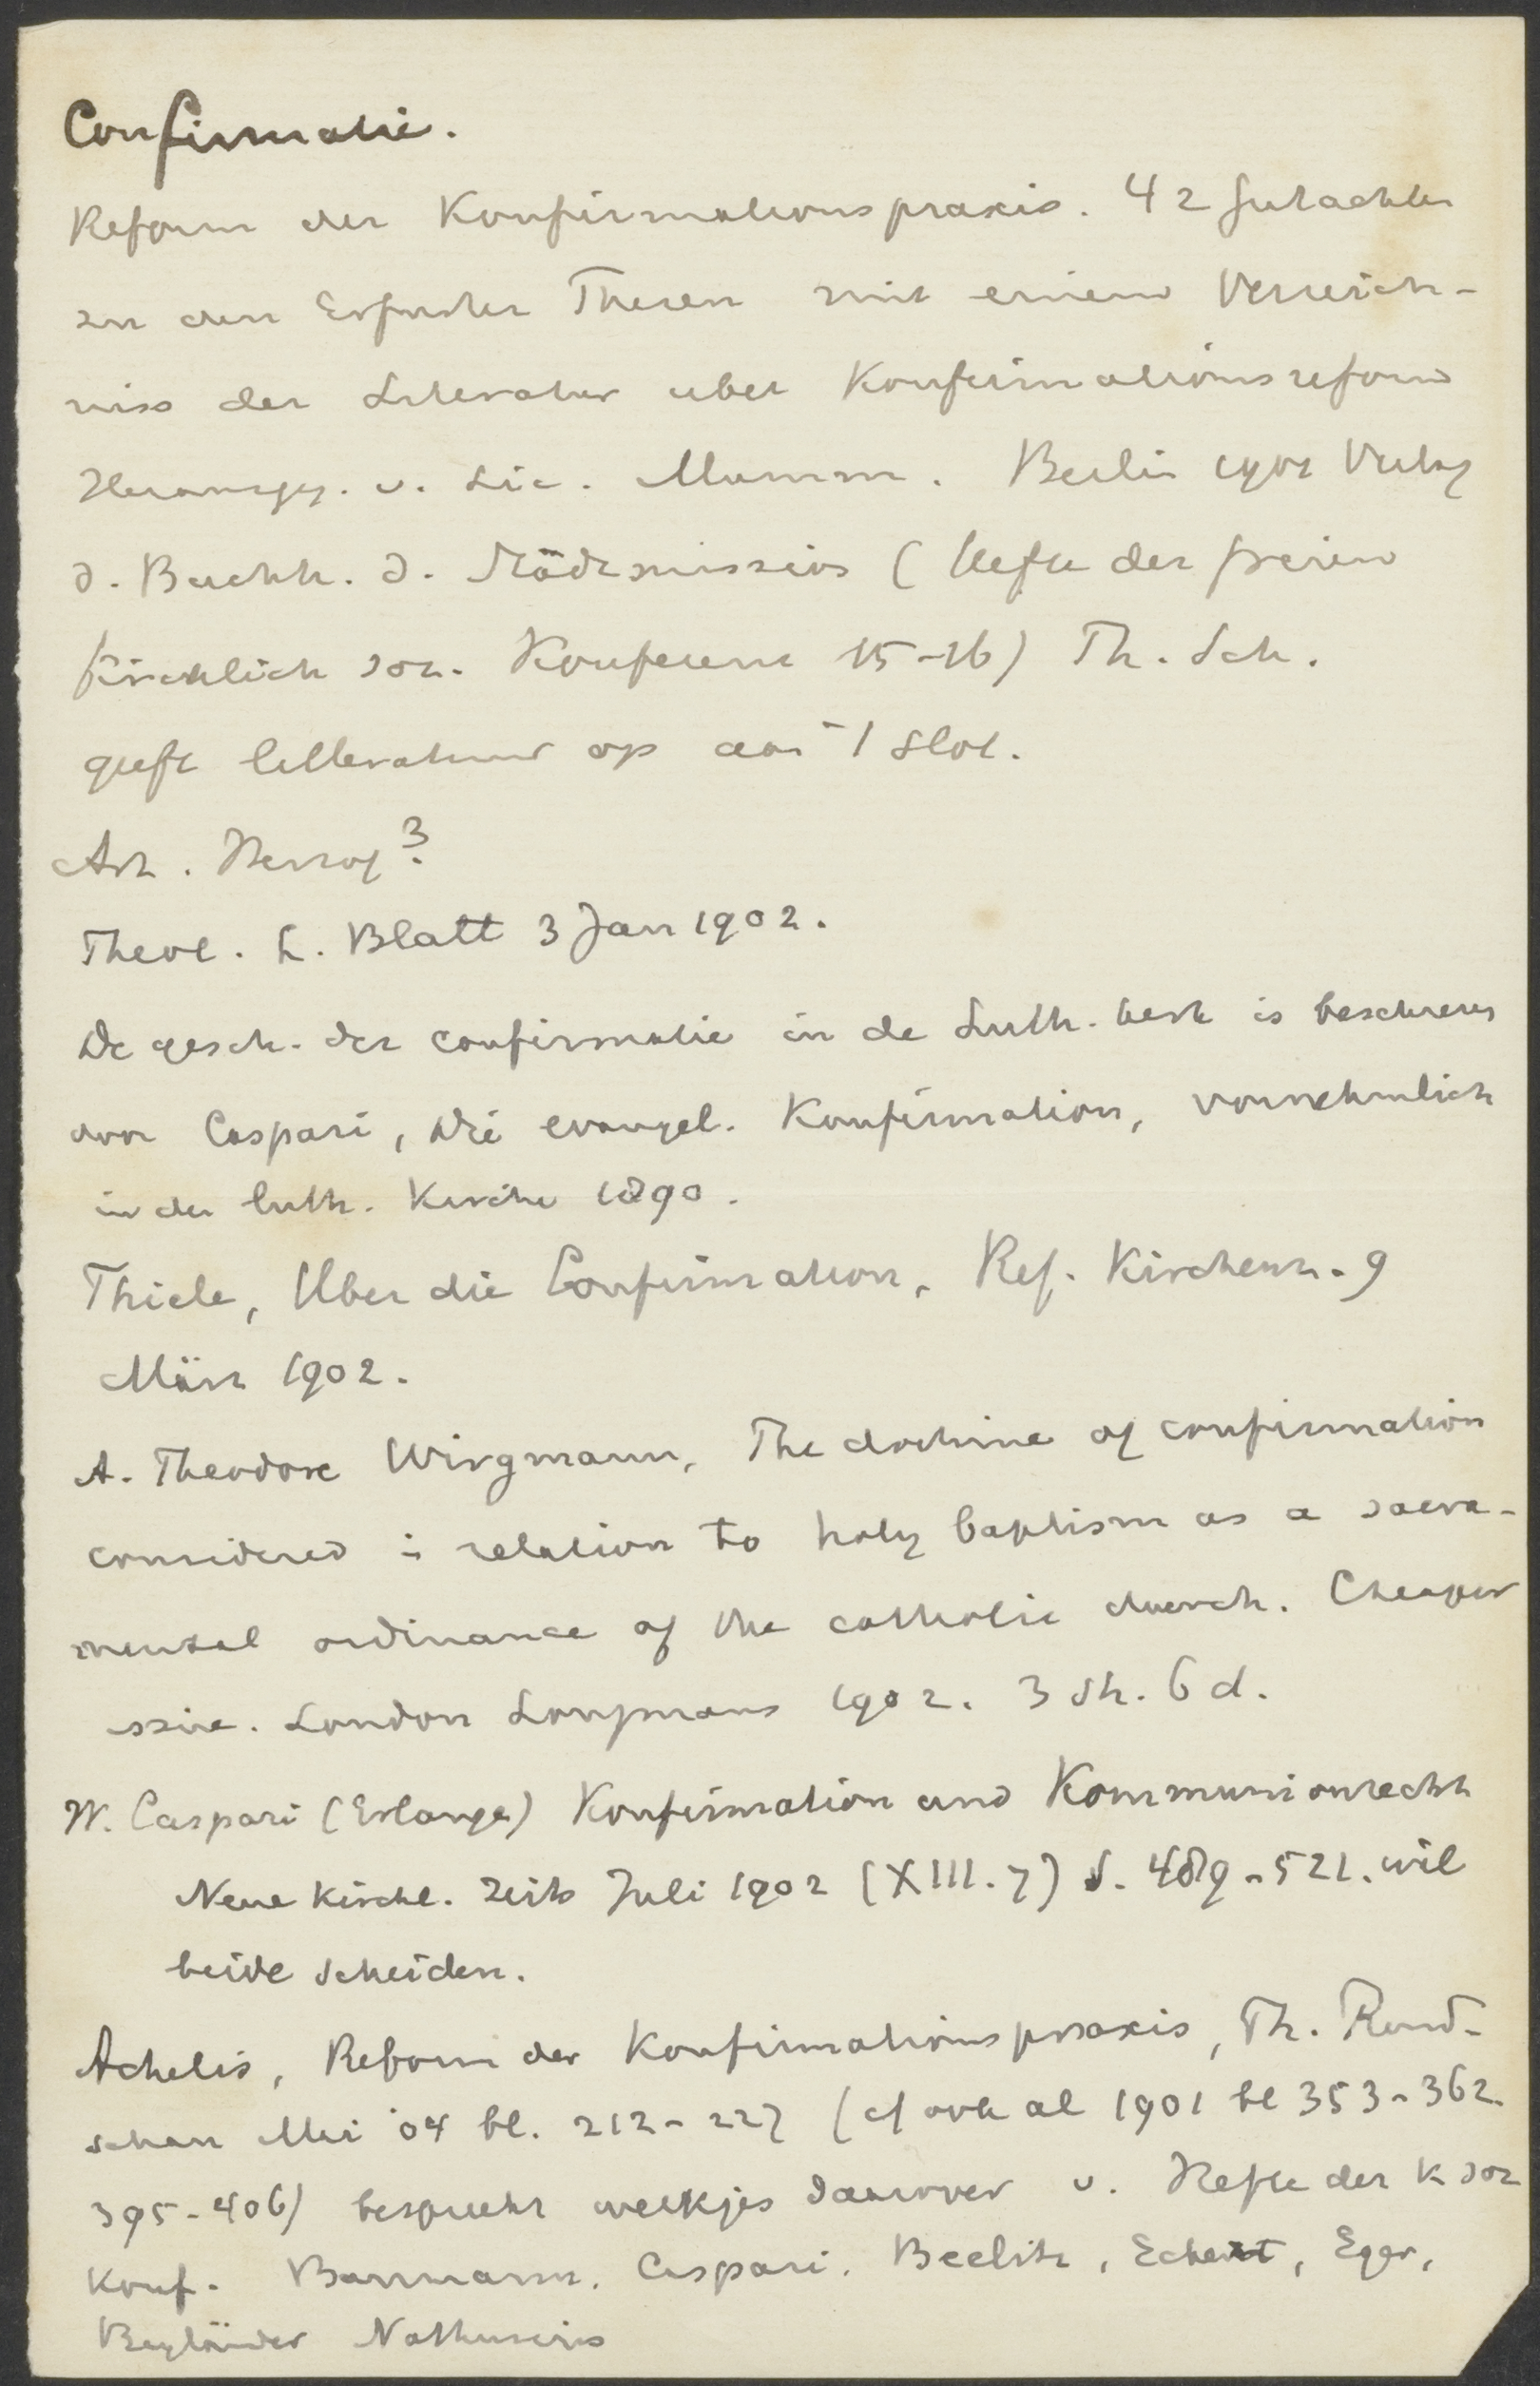 Confirmatie.
Reform der Konfirmationspraxis. 42 Gutachten
zu den Erfurter Thesen mit einem Verzeich-
niss der Literatur uber Konfirmationsreform
Herausgeg. v. Lic. Mumm. Berlin 1901 Verlag
d. Buchh. d. Stadtmission (Hefte der freien
kirchlich soz. Konferenz 15-16) Th. Sch.
geeft litteratuur op aan 't slot.
Art. Herzog³?
Theol. L. Blatt 3 Jan 1902.
De gesch. der confirmatie in de Luth. kerk is beschreven
door Caspari, Die evangel. Konfirmation, vornehmlich
in der luth. Kirche 1890.
Thiele, Uber die Confirmation, Ref. Kirchenz. 9
März 1902.
A. Theodore Wirgmann, The doctrine of confirmation
considered in relation to holy baptism as a sacra-
mental ordinance of the catholic church. Cheaper
issue. London Longmans 1902. 3 sh. 6 d.
W. Caspari (Erlangen) Konfirmation und Kommunionrecht
Neue kirchl. Zeits Juli 1902 (XIII. 7) S. 489-521. wil
beide scheiden.
Achelis, Reform der Konfirmationspraxis, Th. Rund-
schau Mei '04 bl. 212-227 (cf ook al 1901 bl 353-362
395-406) bespreekt werkjes daarover v. Hefte der K soz
Konf. Baumann, Caspari, Beelitz, Eckert, Eger,
Nathusius